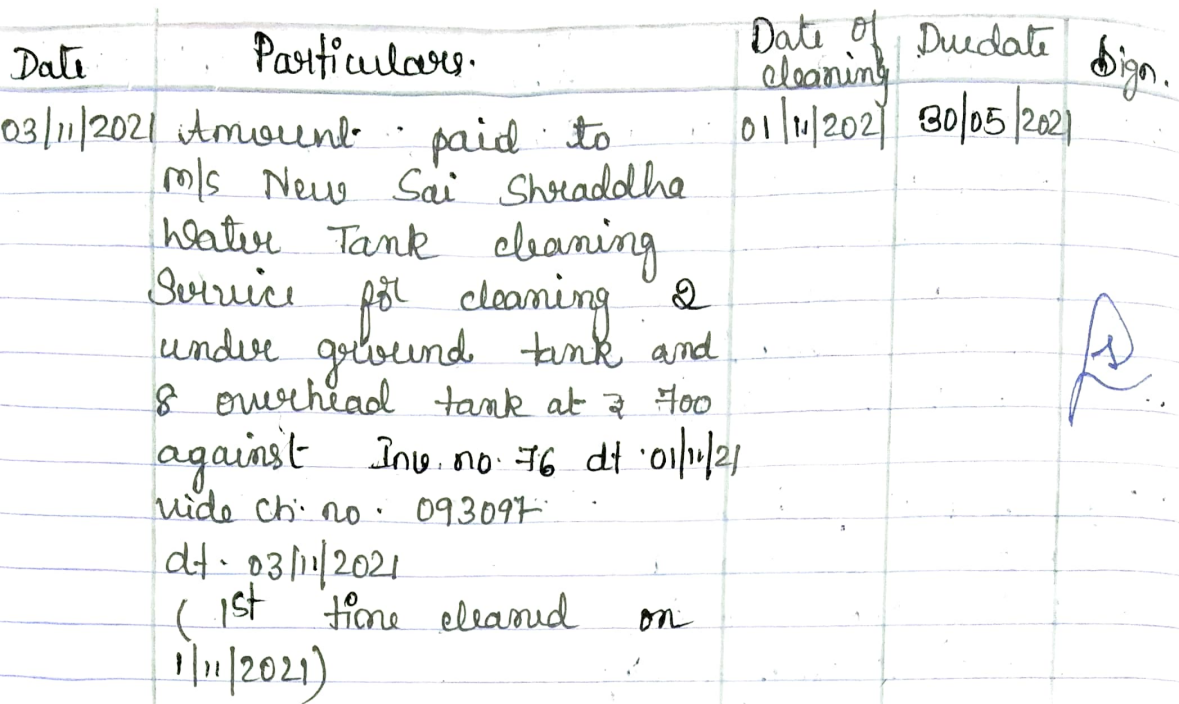 Date Particulars. Date of cleaning Duedate Sign.
03/11/2021 Amount paid to 01/11/2021 30/05/2021
M/s New Sai Shraddha
Water Tank cleaning
Service for cleaning 2
under ground tank and
8 overhead tank at ₹ 700
against Inv. no. 76 dt 01/11/21
vide Ch. no. 093097
dt. 03/11/2021
( 1st time cleaned on
1/11/2021)